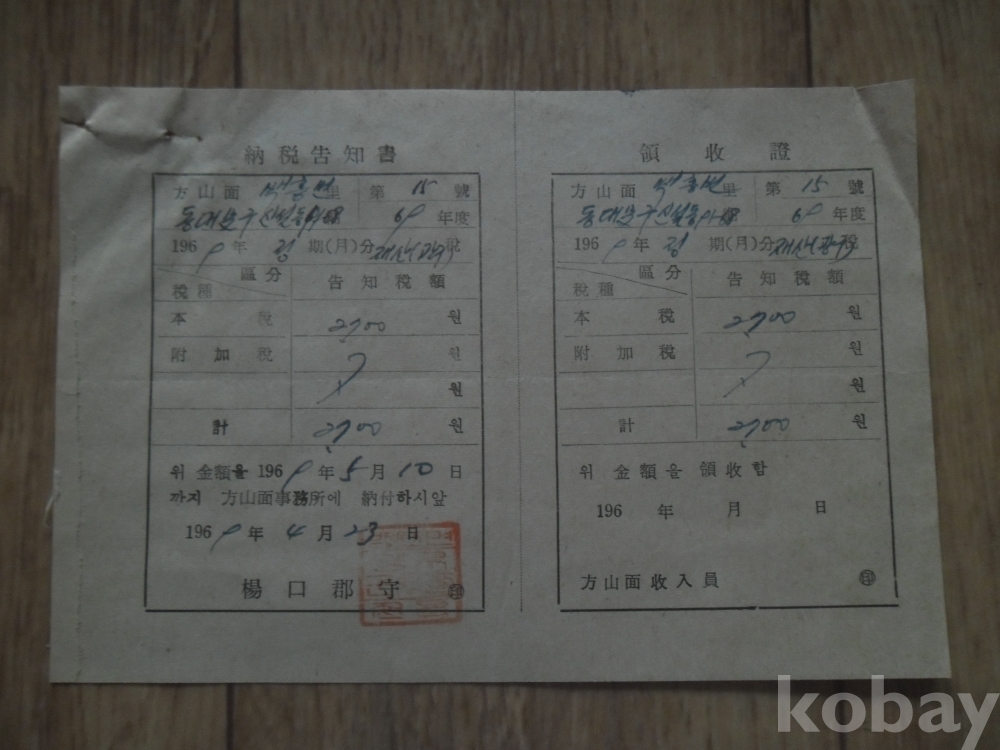 納稅告知書
方山面 里 第 15 號
동대문구 69年度
1969年 정 期(月)分 稅
區分
稅種
告知稅額
本稅 2,700 원
附加稅 원
원
計 2,700 원
위 金額을 1969年 5月 10日
까지 方山面事務所에 納付하시앞
1969年 4月 23日
楊口郡守 ㊞
領收證
方山面 里 第 15 號
동대문구 69年度
1969年 정 期(月)分 稅
區分
稅種
告知稅額
本稅 2,700 원
附加稅 원
원
計 2,700 원
위 金額을 領收함
196 年 月 日
方山面收入員 ㊞
kobay